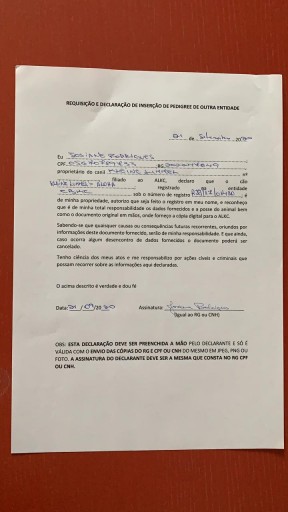 REQUISIÇÃO E DECLARAÇÃO DE INSERÇÃO DE PEDIGREE DE OUTRA ENTIDADE
01 de Setembro
Eu JOSIANE RODRIGUES
CPF RG
proprietário do canil n°
filiado ao ALKC, declaro que o cão
registrado na entidade
sob o número de registro é
de minha propriedade, autorizo que seja feito o registro em meu nome, e reconheço
que é de minha total responsabilidade os dados fornecidos e a posse do animal bem
como o documento original em mãos, onde forneço a cópia digital para o ALKC.
Sabendo-se que quaisquer causas ou consequências futuras recorrentes, oriundos por
informações deste documento fornecido, serão de minha responsabilidade. E que ainda,
caso ocorra algum desencontro de dados fornecidos o documento poderá ser
cancelado.
Tenho ciência dos meus atos e me responsabilizo por ações cíveis e criminais que
possam recorrer sobre as informações aqui declaradas.
O acima descrito é verdade e dou fé
Data: 01 /09/2020 Assinatura:
(Igual ao RG ou CNH)
OBS: ESTA DECLARAÇÃO DEVE SER PREENCHIDA A MÃO PELO DECLARANTE E SÓ É
VÁLIDA COM O ENVIO DAS CÓPIAS DO RG E CPF OU CNH DO MESMO EM JPEG, PNG OU
FOTO. A ASSINATURA DO DECLARANTE DEVE SER A MESMA QUE CONSTA NO RG CPF
OU CNH.